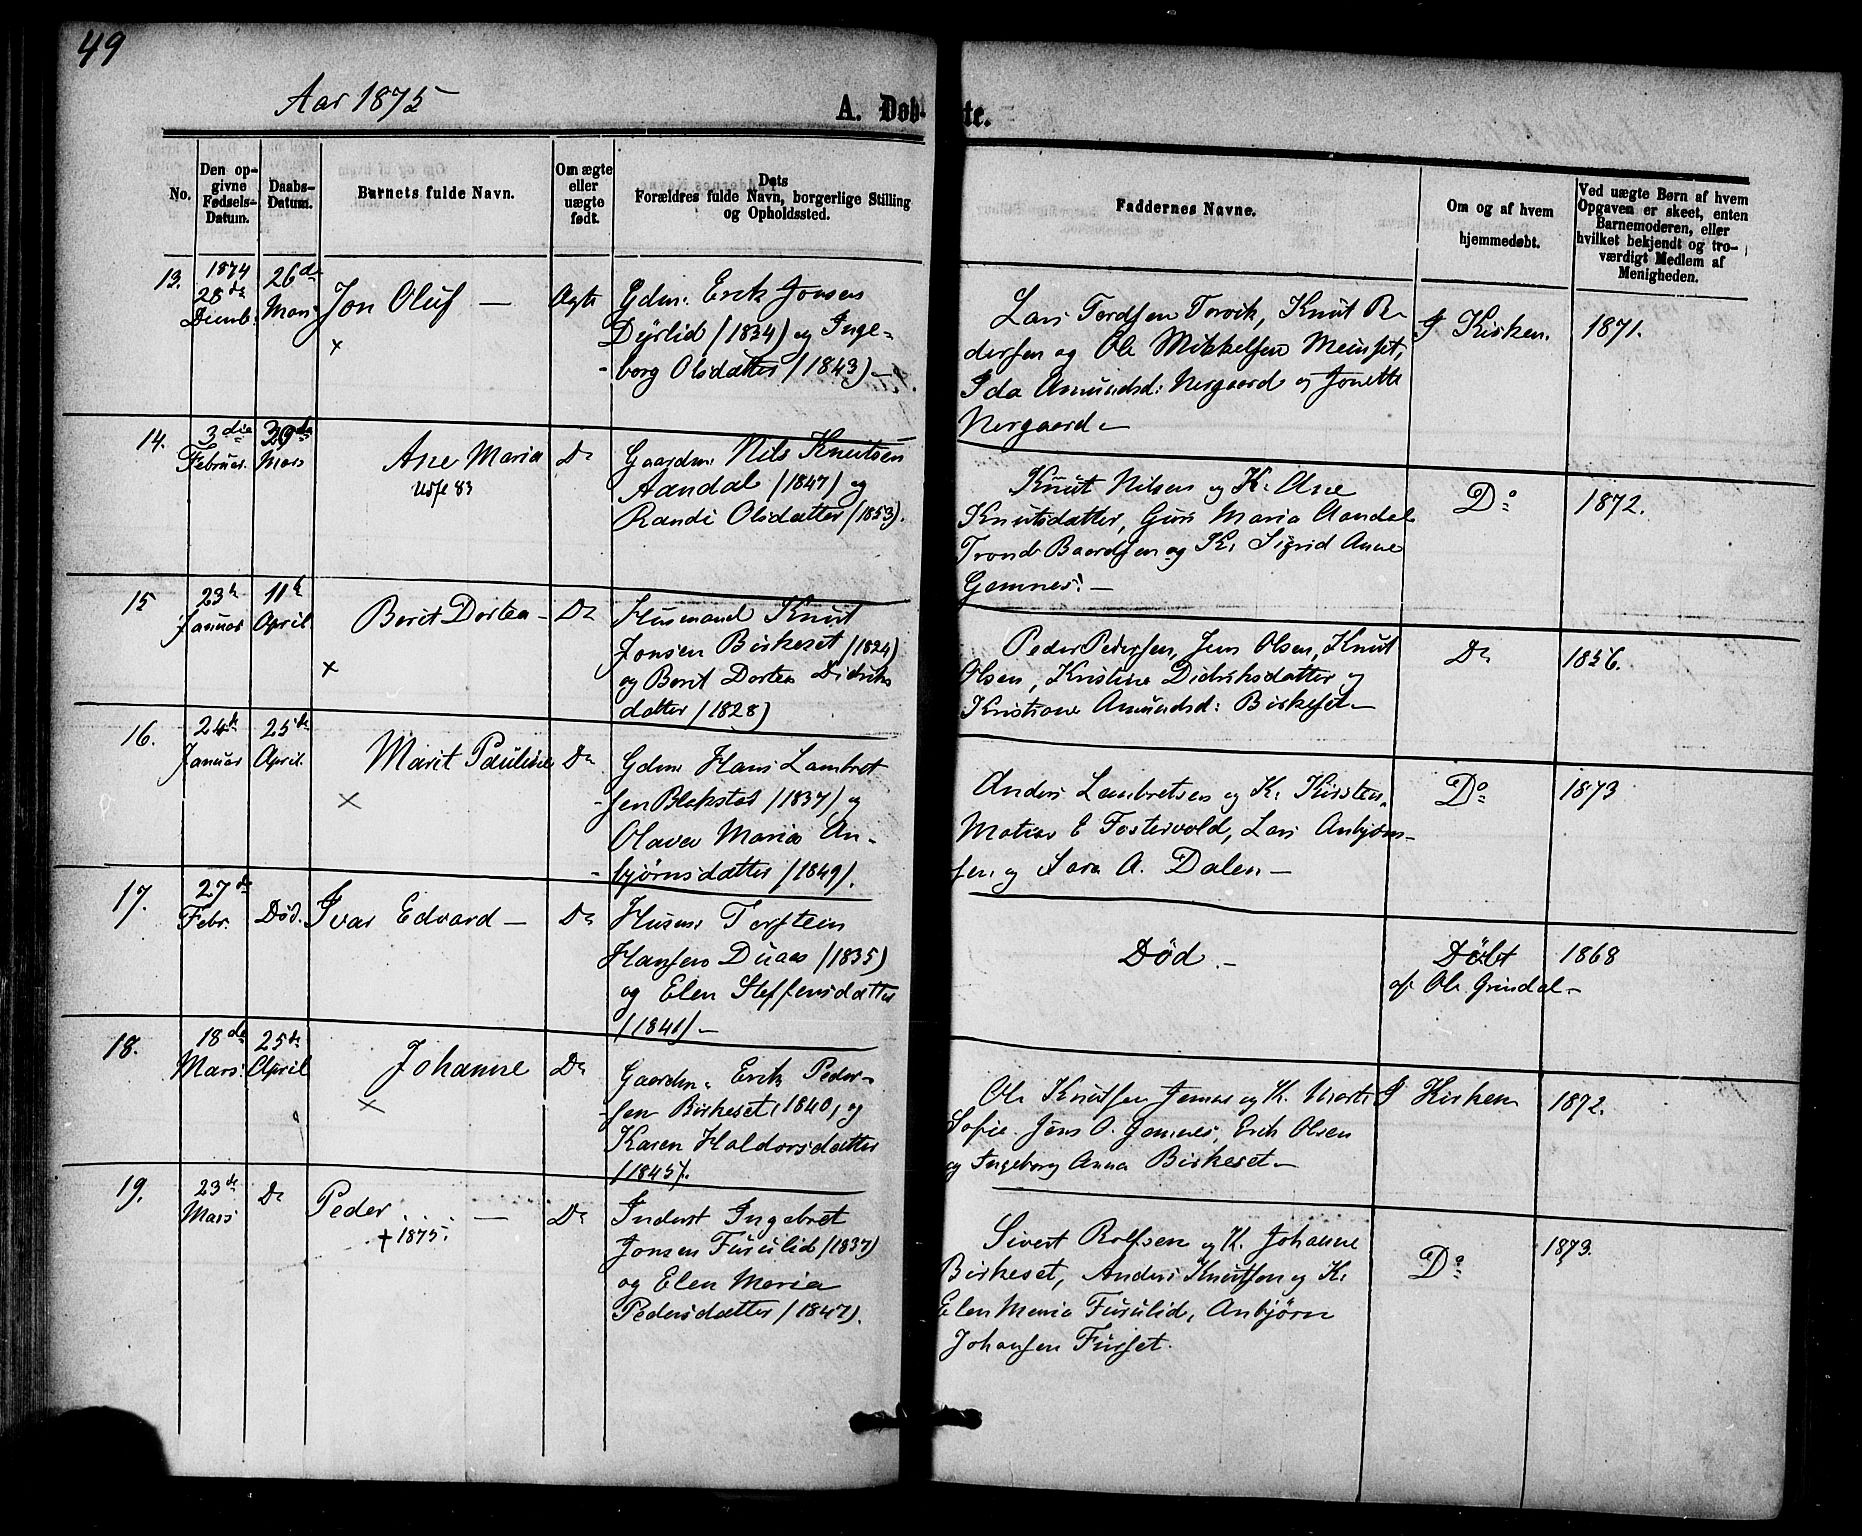 49
Aar 1875
A. Døb-
te.
No.
Den op-
givne
Fødsels-
Datum.
Daabs-
Datum.
Barnets fulde Navn.
Om ægte
eller
uægte
født.
Dets
Forældres fulde Navn, borgerlige Stilling
og Opholdssted.
Faddernes Navne.
Om og af hvem
hjemmedøbt.
Ved uægte Børn af hvem
Opgaven er skeet, enten
Barnemoderen, eller
hvilket bekjendt og tro-
værdigt Medlem af
Menigheden.
13.
1874
28de
Decemb:
26de
Mars
Jon Oluf —
×
Ægte
Gdm: Erik Jonsen
Dyrlid (1834) og Inge-
borg Olsdatter (1843) —
Lars Tordsen Torvik, Knut Pe-
dersen og Ole Mikkelsen Meinset,
Ida Amundsd: Nergaard og Jonette
Nergaard —
I Kirken.
1871.
14.
3die
Februar.
29de
Mars
Ane Maria
Udfl 83
Do
Gaardm: Nils Knutsen
Aandal (1847) og
Randi Olsdatter (1853).
Knut Nilsen og K. Ane
Knutsdatter, Guri Maria Aandal
Trond Baardsen og K. Sigrid Anne
Gamnes. —
Do
1872.
15
23de
Januar
11te
April
Berit Dortea —
×
Do
Husmand Knut
Jonsen Birkeset (1824)
og Berit Dortea Didriks
datter (1828)
Peder Pedersen, Jens Olsen, Knut
Olsen, Kristine Didriksdatter og
Kristiane Amundsd: Birkeset —
Do
1856.
16.
24de
Januar
25de
April.
Marit Pauline
×
Do
Gdm: Hans Lambret
sen Blakstad (1837) og
Olava Maria An-
bjørnsdatter (1849).
Anders Lambretsen og K. Kirsten
E Fostervold, Lars Anbjørn-
sen og Sara A. Dalen —
Do
1873
17.
27de
Febr.
Død.
Ivar Edvard —
Do
Husm: Torstein
Hansen Duaas (1835)
og Elen Steffensdatter
(1841) —
Død. —
Døbt
af Ole Grindal —
1868
18.
18de
Mars.
25de
April
Johanne
×
Do
Gaardm: Erik Peder-
sen Birkeset, 1840, og
Karen Haldorsdatter
(1845).
Ole Knutsen Jemas og K. Marte
Sofie. Jens O. Gamnes, Erik Olsen
og Ingeborg Anna Birkeset —
I Kirken
1872.
19.
23de
Mars
Do
Peder —
+ 1875.
Do
Inderst Ingebret
Jonsen Furulid (1837)
og Elen Maria
Pedersdatter (1847).
Sivert Rolfsen og K. Johanne
Birkeset, Anders Knutsen og K.
Elen Maria Furulid, Anbjørn
Johansen Furset.
Do
1873.